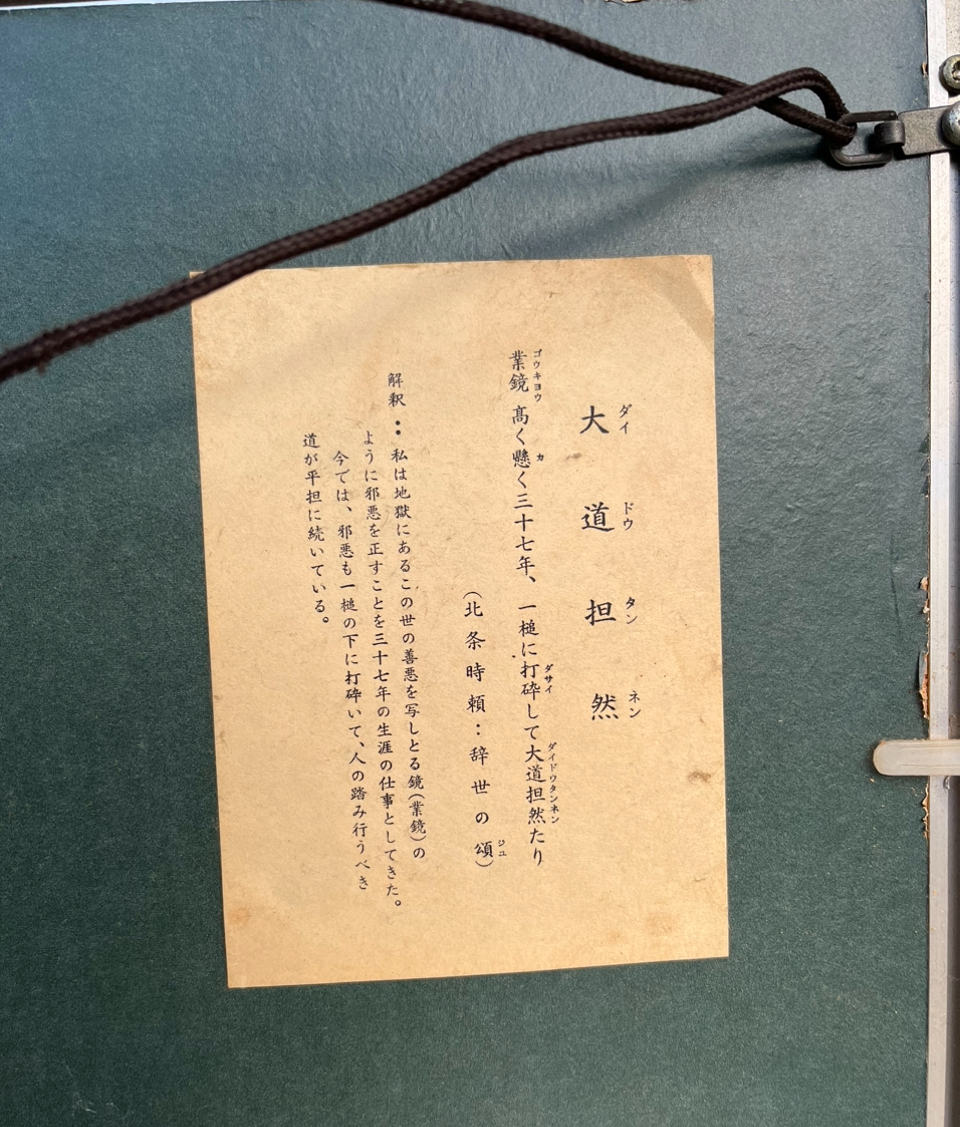 大道担然
ダイドウタンネン
業鏡高く懸く三十七年、一槌に打砕して大道担然たり
ゴウキョウ カ ダサイ ダイドウタンネン
（北条時頼：辞世の頌）
ジュ
解釈：私は地獄にあるこの世の善悪を写しとる鏡（業鏡）の
ように邪悪を正すことを三十七年の生涯の仕事としてきた。
今では、邪悪も一槌の下に打砕いて、人の踏み行うべき
道が平担に続いている。